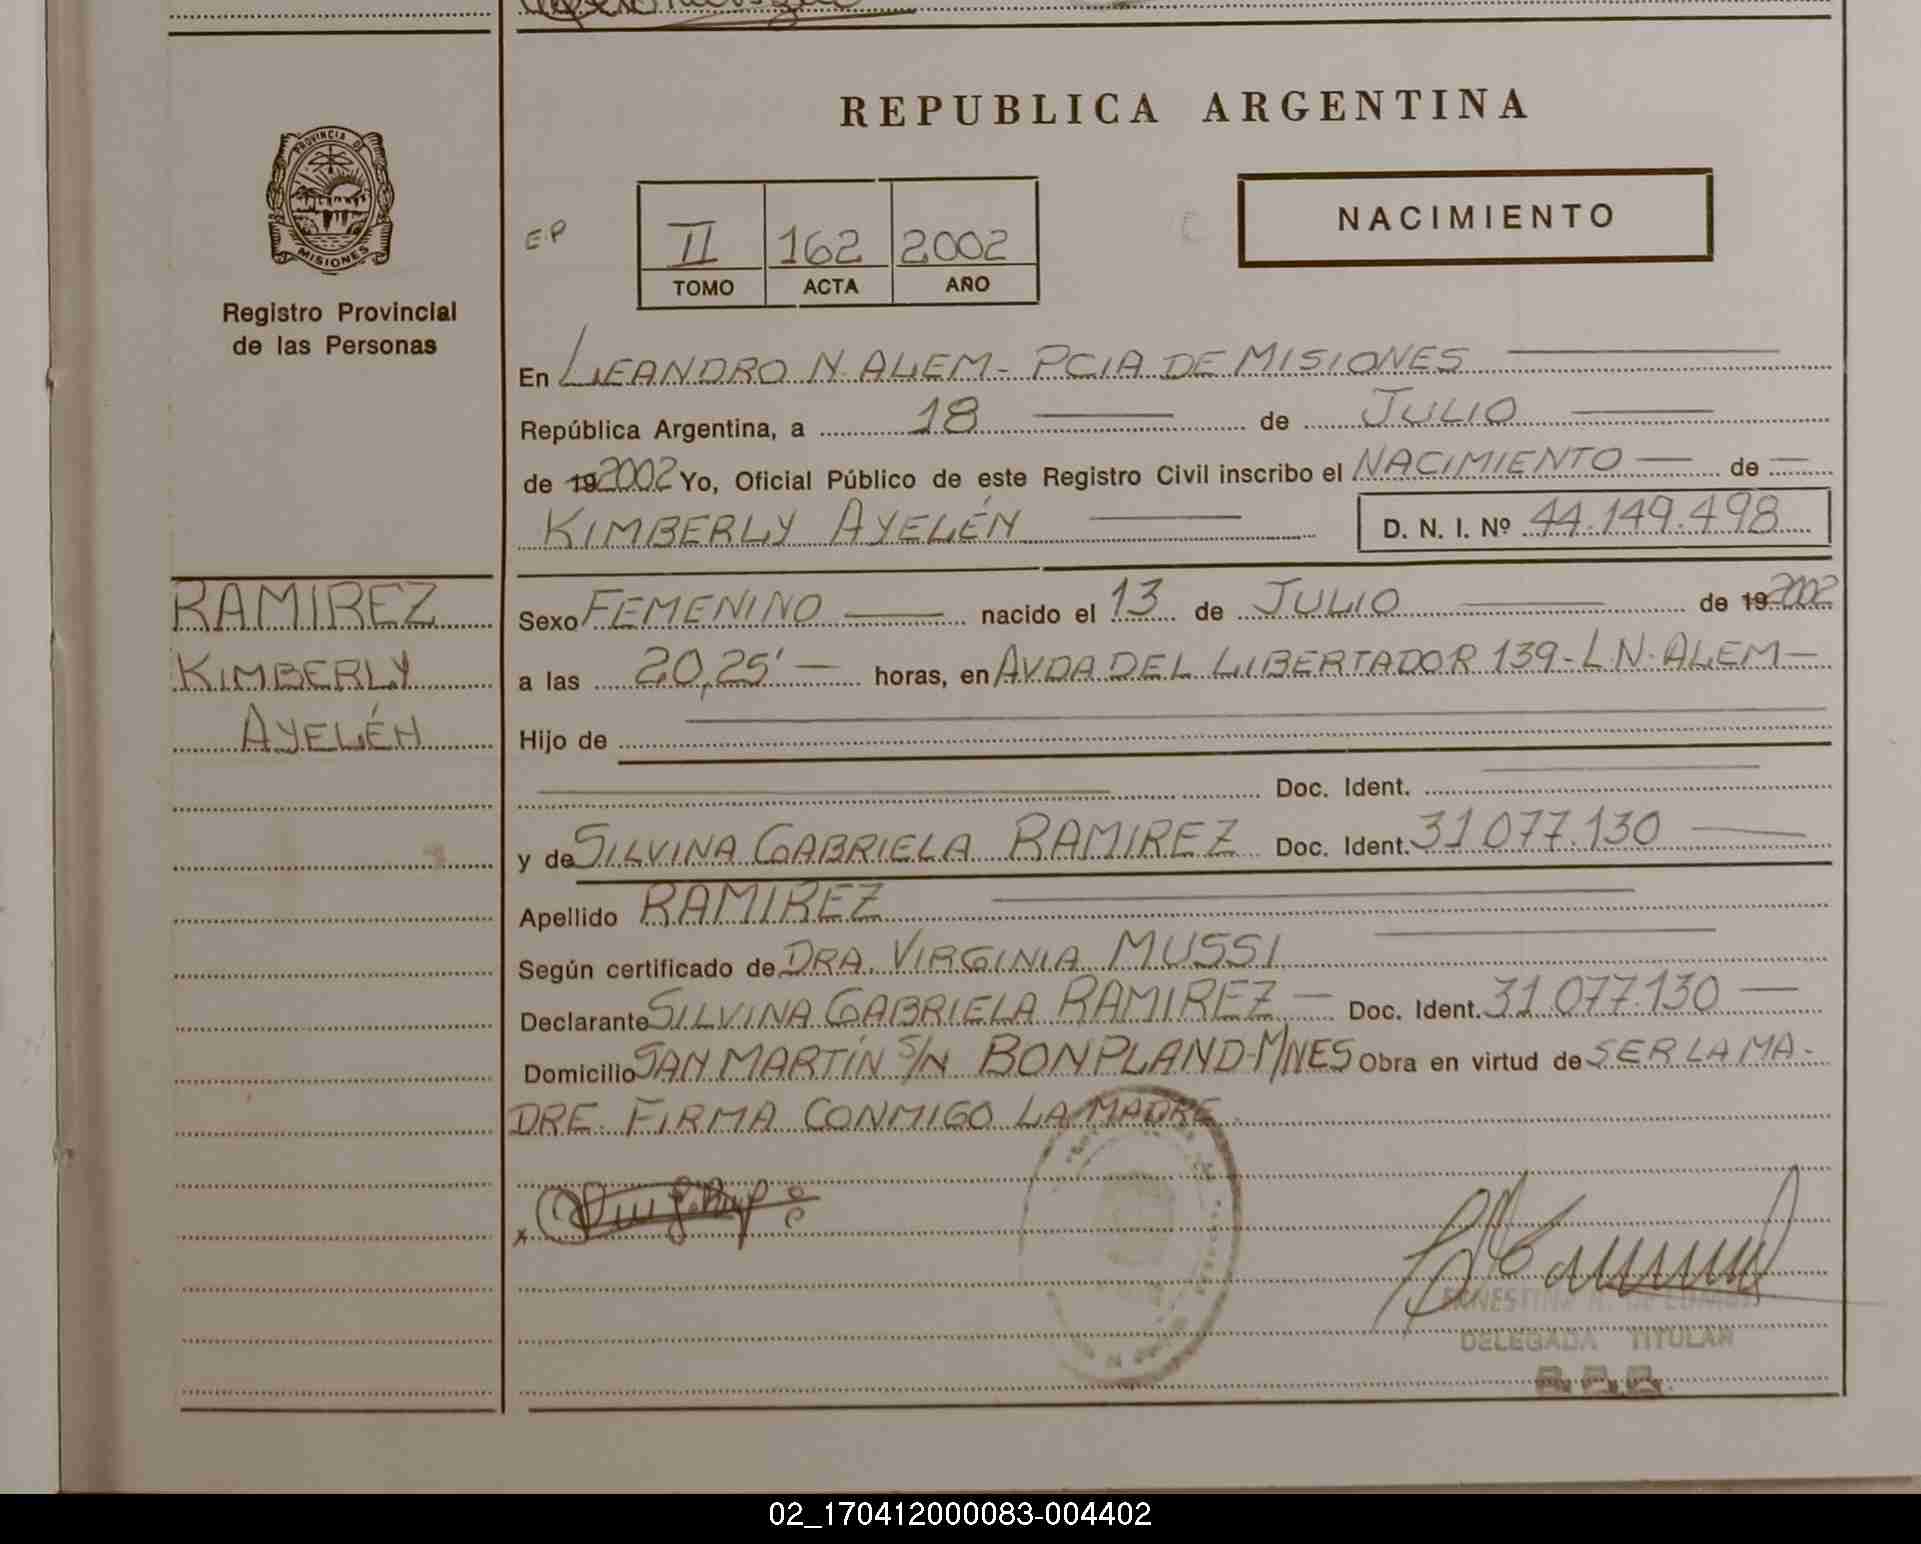 REPUBLICA ARGENTINA
PROVINCIA DE
MISIONES
Registro Provincial
de las Personas
E.P
II 162 2002
TOMO ACTA AÑO
NACIMIENTO
En LEANDRO N. ALEM - PCIA DE MISIONES
República Argentina, a 18 de JULIO
de 192002 Yo, Oficial Público de este Registro Civil inscribo el NACIMIENTO de
KIMBERLY AYELÉN D. N. I. Nº 44.149.498
RAMIREZ
KIMBERLY
AYELÉN
Sexo FEMENINO nacido el 13 de JULIO de 192002
a las 20,25' horas, en AVDA DEL LIBERTADOR 139 - L N. ALEM
Hijo de
Doc. Ident.
y de SILVINA GABRIELA RAMIREZ Doc. Ident. 31.077.130
Apellido RAMIREZ
Según certificado de DRA. VIRGINIA MUSSI
Declarante SILVINA GABRIELA RAMIREZ Doc. Ident. 31.077.130
Domicilio SAN MARTÍN S/N BONPLAND-M/NES Obra en virtud de SER LA MA-
DRE. FIRMA CONMIGO LA MADRE.
DELEGADA TITULAR
02_170412000083-004402